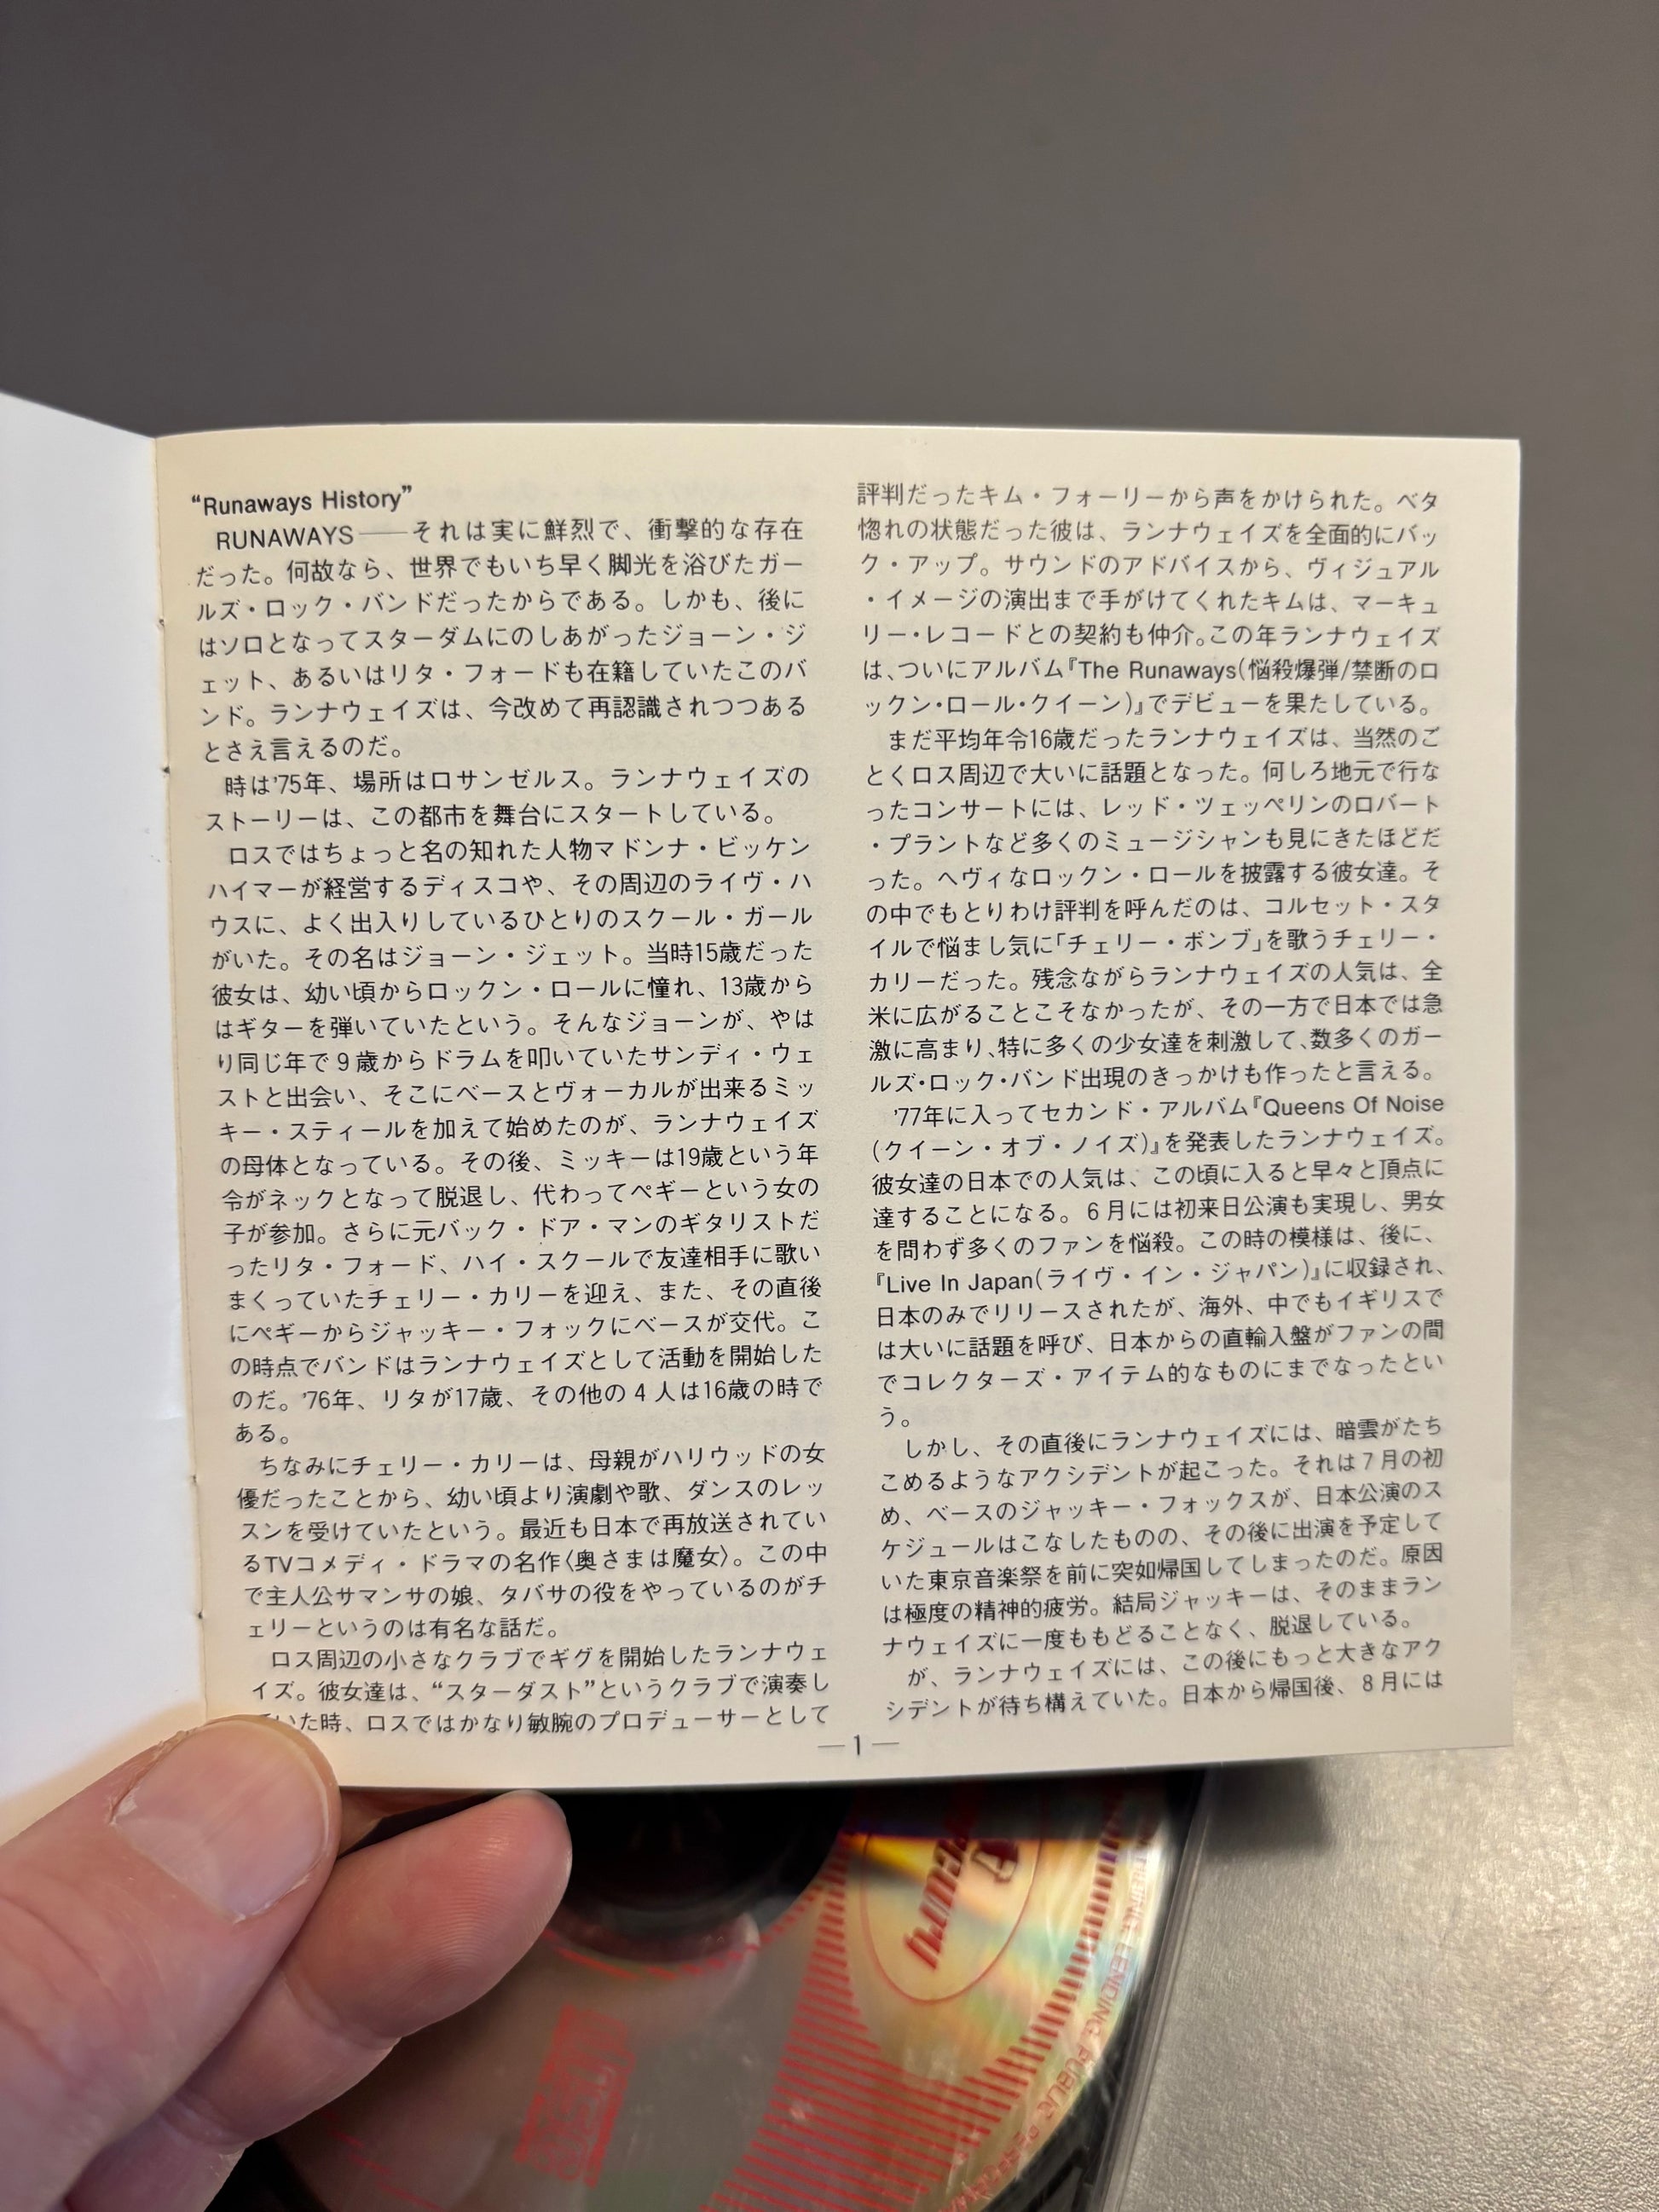 “Runaways History”
RUNAWAYS——それは実に鮮烈で、衝撃的な存在
だった。何故なら、世界でもいち早く脚光を浴びたガー
ルズ・ロック・バンドだったからである。しかも、後に
はソロとなってスターダムにのしあがったジョーン・ジ
ェット、あるいはリタ・フォードも在籍していたこのバ
ンド。ランナウェイズは、今改めて再認識されつつある
とさえ言えるのだ。
時は'75年、場所はロサンゼルス。ランナウェイズの
ストーリーは、この都市を舞台にスタートしている。
ロスではちょっと名の知れた人物マドンナ・ビッケン
ハイマーが経営するディスコや、その周辺のライヴ・ハ
ウスに、よく出入りしているひとりのスクール・ガール
がいた。その名はジョーン・ジェット。当時15歳だった
彼女は、幼い頃からロックン・ロールに憧れ、13歳から
はギターを弾いていたという。そんなジョーンが、やは
り同じ年で9歳からドラムを叩いていたサンディ・ウェ
ストと出会い、そこにベースとヴォーカルが出来るミッ
キー・スティールを加えて始めたのが、ランナウェイズ
の母体となっている。その後、ミッキーは19歳という年
令がネックとなって脱退し、代わってペギーという女の
子が参加。さらに元バック・ドア・マンのギタリストだ
ったリタ・フォード、ハイ・スクールで友達相手に歌い
まくっていたチェリー・カリーを迎え、また、その直後
にペギーからジャッキー・フォックにベースが交代。こ
の時点でバンドはランナウェイズとして活動を開始した
のだ。'76年、リタが17歳、その他の4人は16歳の時で
ある。
ちなみにチェリー・カリーは、母親がハリウッドの女
優だったことから、幼い頃より演劇や歌、ダンスのレッ
スンを受けていたという。最近も日本で再放送されてい
るTVコメディ・ドラマの名作〈奥さまは魔女〉。この中
で主人公サマンサの娘、タバサの役をやっているのがチ
ェリーというのは有名な話だ。
ロス周辺の小さなクラブでギグを開始したランナウェ
イズ。彼女達は、“スターダスト”というクラブで演奏し
ていた時、ロスではかなり敏腕のプロデューサーとして
評判だったキム・フォーリーから声をかけられた。ベタ
惚れの状態だった彼は、ランナウェイズを全面的にバッ
ク・アップ。サウンドのアドバイスから、ヴィジュアル
・イメージの演出まで手がけてくれたキムは、マーキュ
リー・レコードとの契約も仲介。この年ランナウェイズ
は、ついにアルバム『The Runaways(悩殺爆弾/禁断のロ
ックン・ロール・クイーン)』でデビューを果たしている。
まだ平均年令16歳だったランナウェイズは、当然のご
とくロス周辺で大いに話題となった。何しろ地元で行な
ったコンサートには、レッド・ツェッペリンのロバート
・プラントなど多くのミュージシャンも見にきたほどだ
った。ヘヴィなロックン・ロールを披露する彼女達。そ
の中でもとりわけ評判を呼んだのは、コルセット・スタ
イルで悩まし気に「チェリー・ボンブ」を歌うチェリー・
カリーだった。残念ながらランナウェイズの人気は、全
米に広がることこそなかったが、その一方で日本では急
激に高まり、特に多くの少女達を刺激して、数多くのガー
ルズ・ロック・バンド出現のきっかけも作ったと言える。
'77年に入ってセカンド・アルバム『Queens Of Noise
(クイーン・オブ・ノイズ)』を発表したランナウェイズ。
彼女達の日本での人気は、この頃に入ると早々と頂点に
達することになる。6月には初来日公演も実現し、男女
を問わず多くのファンを悩殺。この時の模様は、後に、
『Live In Japan(ライヴ・イン・ジャパン)』に収録され、
日本のみでリリースされたが、海外、中でもイギリスで
は大いに話題を呼び、日本からの直輸入盤がファンの間
でコレクターズ・アイテム的なものにまでなったとい
う。
しかし、その直後にランナウェイズには、暗雲がたち
こめるようなアクシデントが起こった。それは7月の初
め、ベースのジャッキー・フォックスが、日本公演のス
ケジュールはこなしたものの、その後に出演を予定して
いた東京音楽祭を前に突如帰国してしまったのだ。原因
は極度の精神的疲労。結局ジャッキーは、そのままラン
ナウェイズに一度ももどることなく、脱退している。
が、ランナウェイズには、この後にもっと大きなアク
シデントが待ち構えていた。日本から帰国後、8月には
—1—
MERCURY